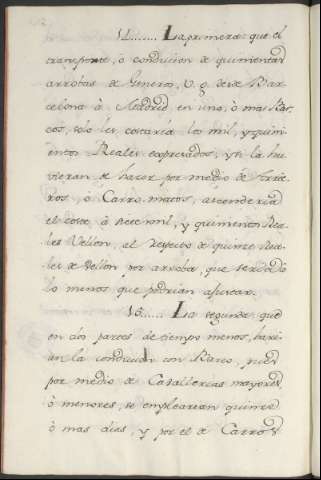 14....... La primera: que el
transporte, o condución de quinientas
arrobas de Genero, V. g. desde Bar-
celona à Madrid, en uno, ò mas Bar-
cos, solo les costaría los mil, y quini-
entos Reales expresados, y si la hu-
vieran de hacer por medio de Arrie-
ros, ò Carro-matos, ascendería
el coste à siete mil, y quinientos Rea-
les Vellon, al respecto de quince Rea-
les de Vellon por arroba, que sería
lo menos que podrian ajustar.
15...... La segunda: que
en dos partes de tiempo menos, harí-
an la condución con Barco, pues
por medio de Cavallerías mayores,
ò menores, se emplearían quince
ò mas días, y por el de Carros